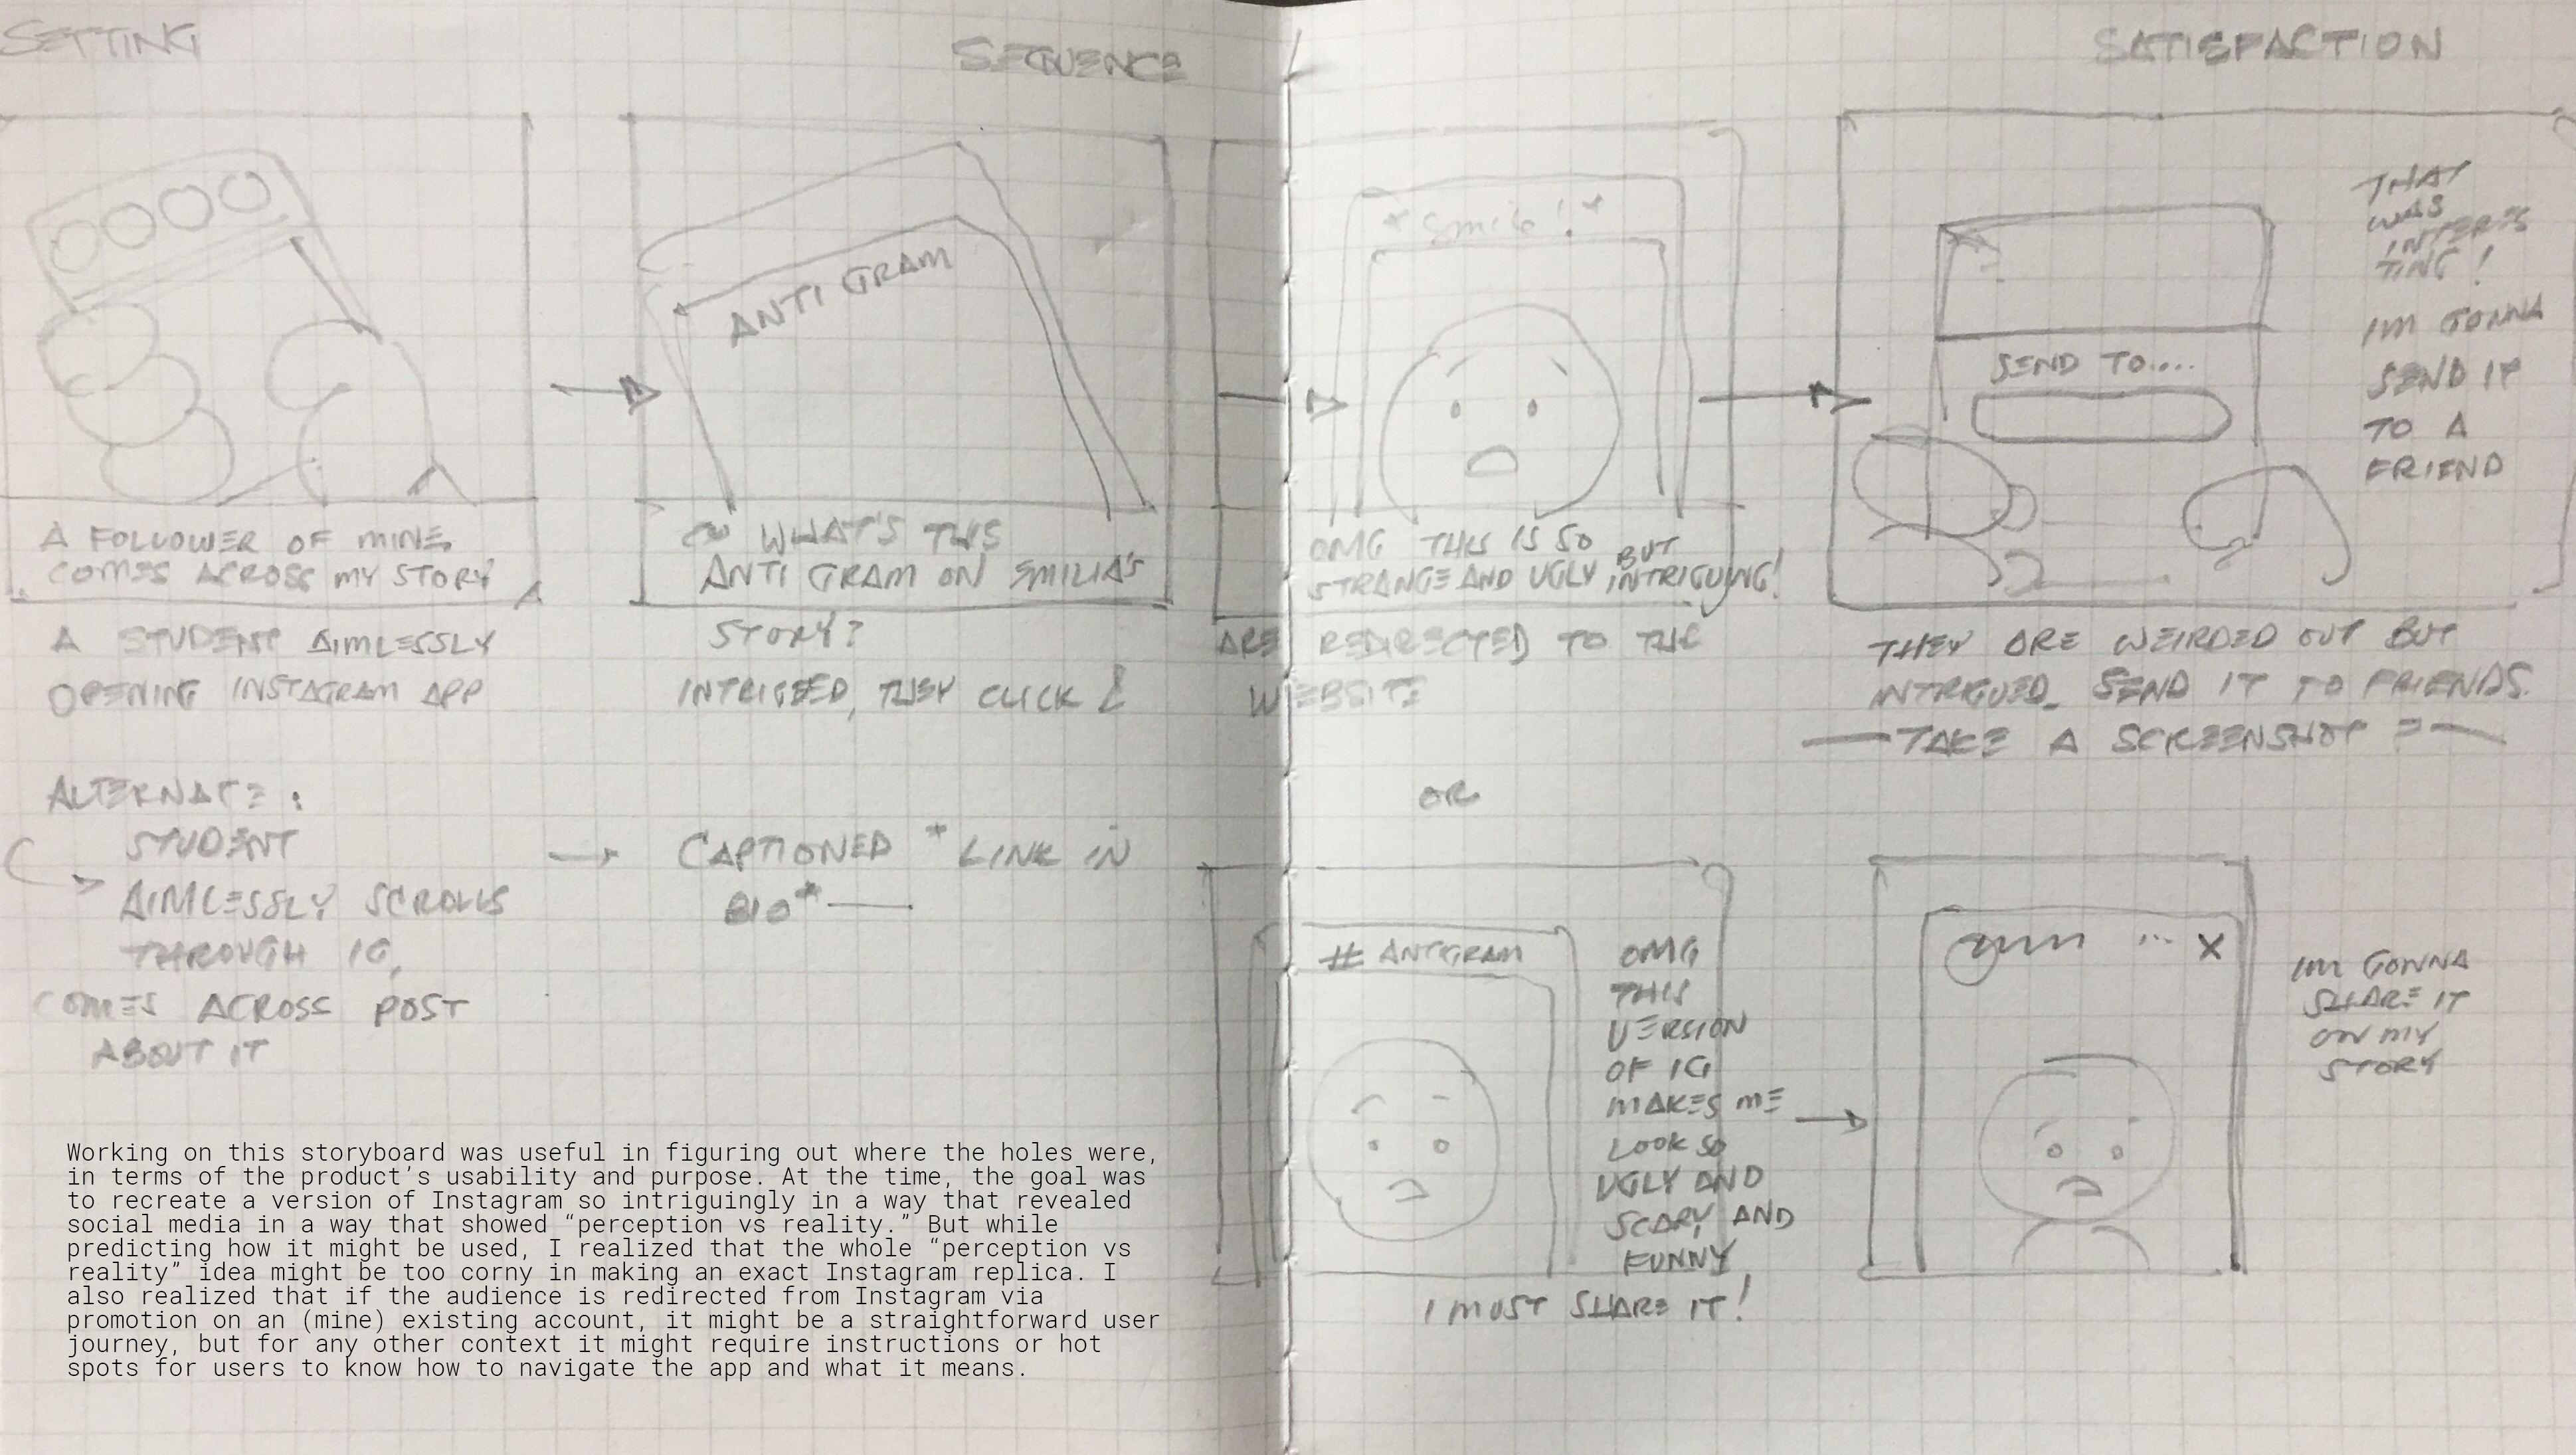 SETTING
SEQUENCE
SATISFACTION
A FOLLOWER OF MINE
COMES ACROSS MY STORY
A STUDENT AIMLESSLY
OPENING INSTAGRAM APP
ANTI GRAM
WHAT'S THIS
ANTI GRAM ON EMILIA'S
STORY?
INTRIGEED, THEY CLICK &
*Smile!*
OMG THIS IS SO
STRANGE AND UGLY BUT INTRIGUING!
ARE REDIRECTED TO THE
WEBSITE
SEND TO....
THAT
WAS
INTERES
TING!
IM GONNA
SEND IT
TO A
FRIEND
THEY ARE WEIRDED OUT BUT
INTRIGUED. SEND IT TO FRIENDS.
TAKE A SCREENSHOT
ALTERNATE:
STUDENT
AIMLESSLY SCROLLS
THROUGH IG,
COMES ACROSS POST
ABOUT IT
CAPTIONED *LINK IN
BIO*
OR
# ANTIGRAM
OMG
THIS
VERSION
OF IG
MAKES ME
LOOK SO
UGLY AND
SCARY AND
FUNNY
I MUST SHARE IT!
... X
IM GONNA
SHARE IT
ON MY
STORY
Working on this storyboard was useful in figuring out where the holes were,
in terms of the product's usability and purpose. At the time, the goal was
to recreate a version of Instagram so intriguingly in a way that revealed
social media in a way that showed “perception vs reality.” But while
predicting how it might be used, I realized that the whole “perception vs
reality” idea might be too corny in making an exact Instagram replica. I
also realized that if the audience is redirected from Instagram via
promotion on an (mine) existing account, it might be a straightforward user
journey, but for any other context it might require instructions or hot
spots for users to know how to navigate the app and what it means.